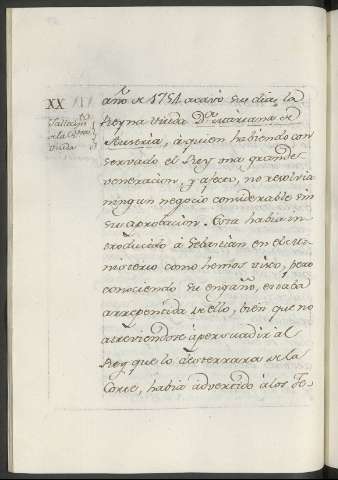 XX
Fallecim.to
de la Reyna
viuda
año de 1754 acavò sus dias la
Reyna viuda D.a Mariana de
Austria, à quien habiendo con
servado el Rey una grande
veneracion, y afecto, no resolvia
ningun negocio considerable sin
su aprobacion. Esta habia in
troducido à Sebastian en el mi-
nisterio como hemos visto, pero
conociendo su engaño, estaba
arrepentida de ello, bien que no
atreviendose à persuadir al
Rey que lo desterrara de la
Corte, habia advertido à los Je-